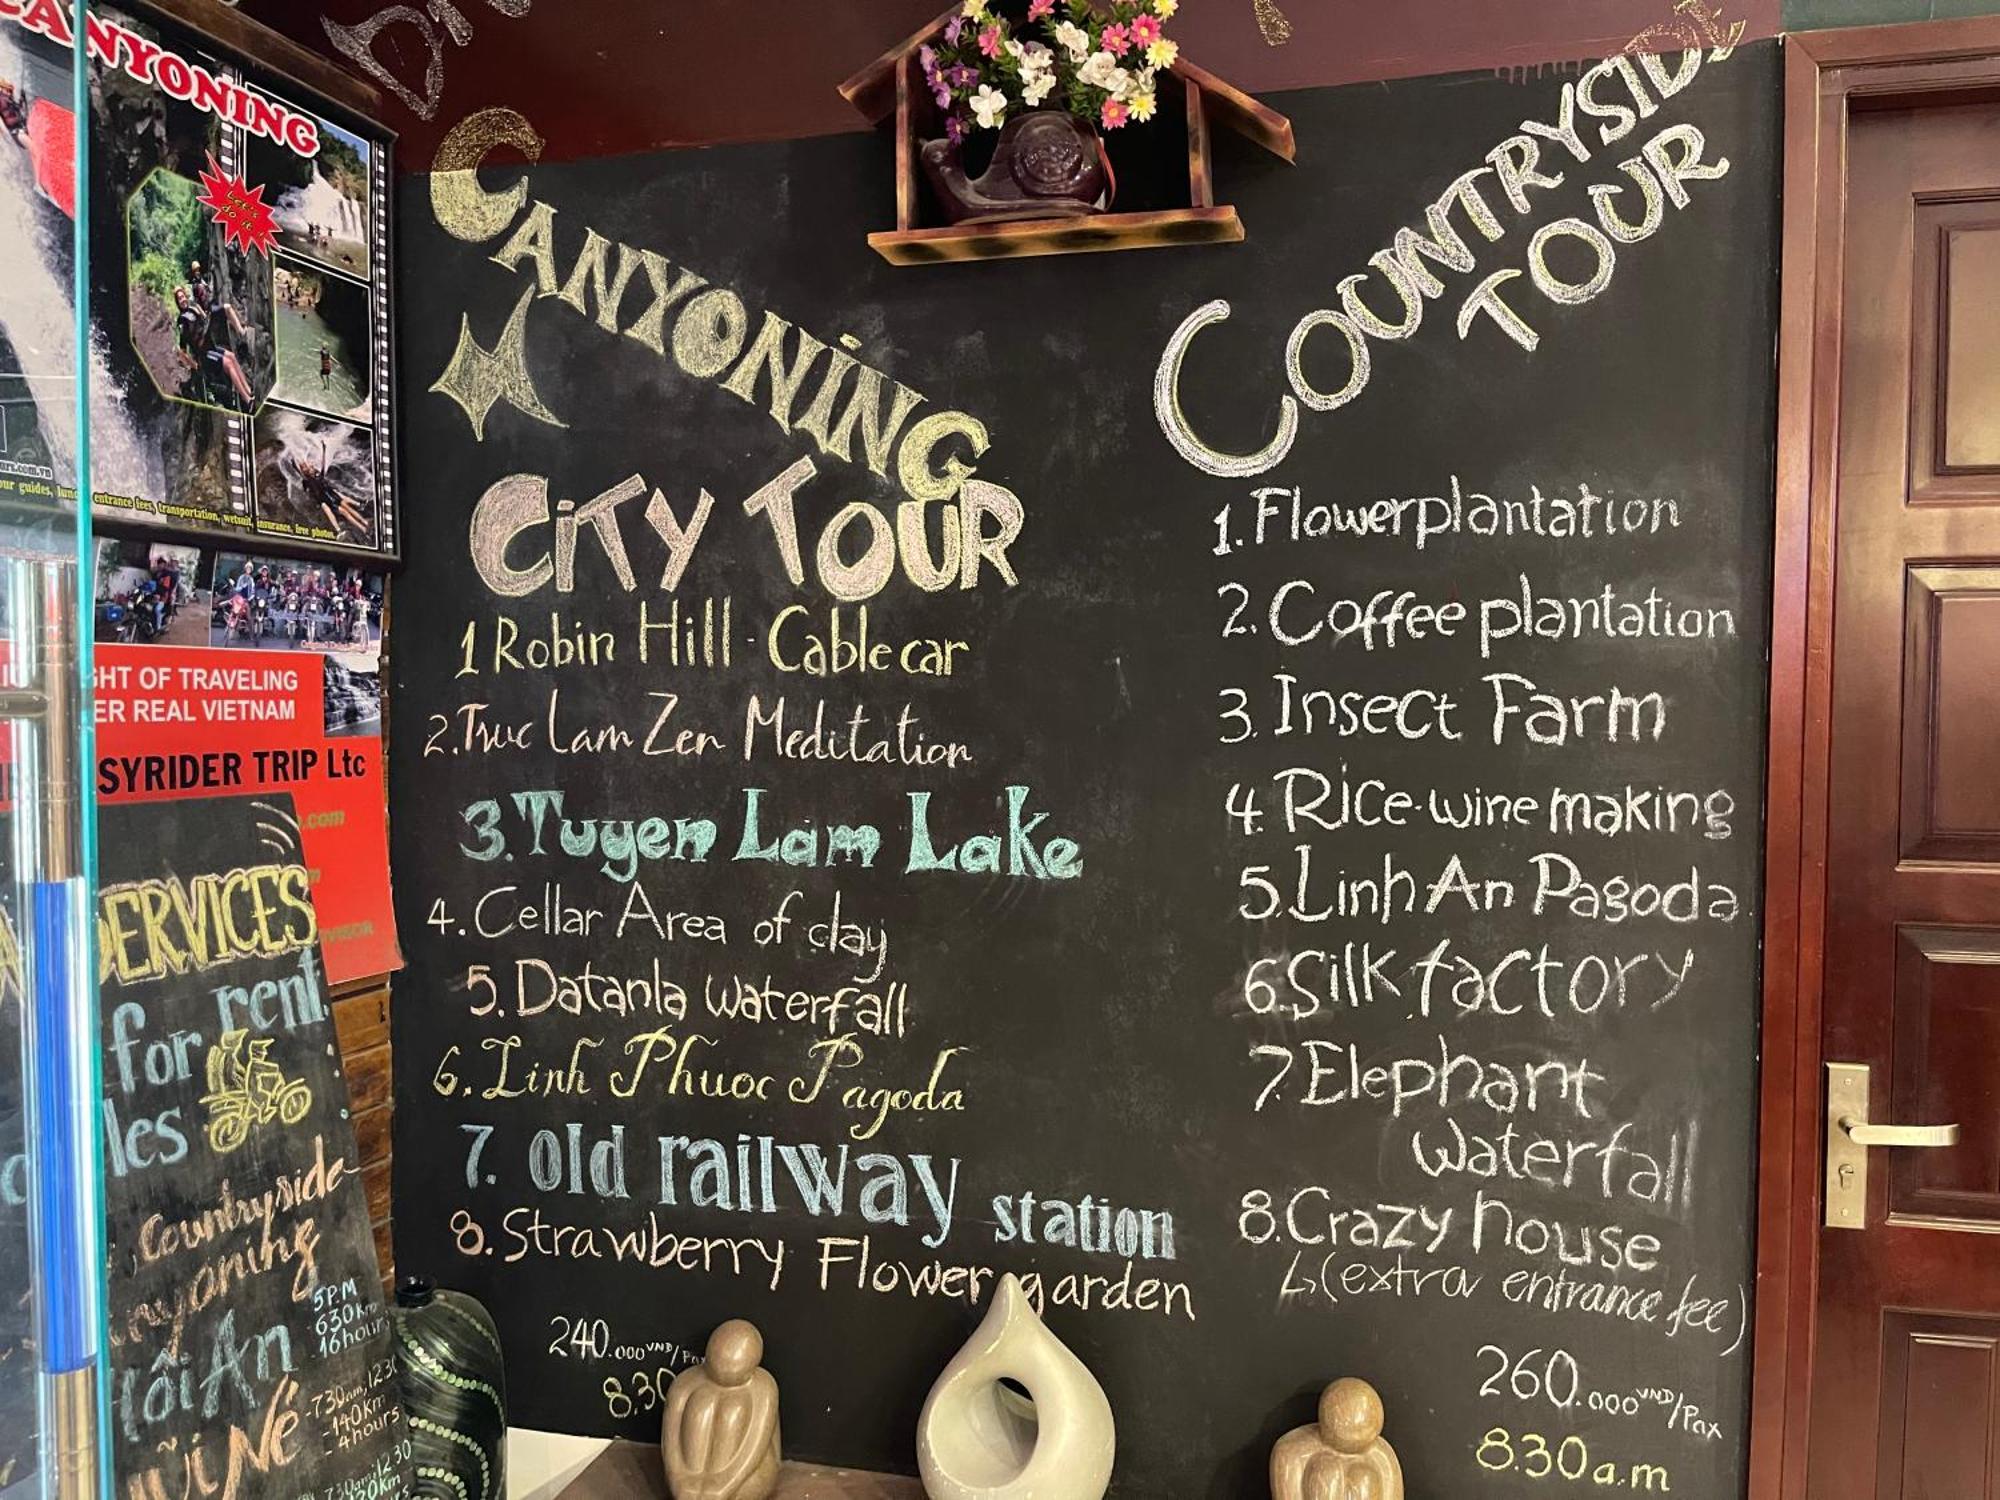 CANYONING
Let's
do it!
our guides, lunch, entrance fees, transportation, wetsuit, insurance, free photos.
GHT OF TRAVELING
ER REAL VIETNAM
SYRIDER TRIP Ltc
.com
SERVICES
for rent
les
Countryside
nyoning
Hôi An
5P.M
630km
16hours
Mũi Né
-730am,1230
-140km
-4hours
730am;1230
CANYONING
CiTY TOUR
1 Robin Hill - Cable car
2. Truc Lam Zen Meditation
3. Tuyen Lam Lake
4. Cellar Area of clay
5. Datanla waterfall
6. Linh Phuoc Pagoda
7. old railway station
8. Strawberry Flower garden
240.000 VND/Pax
8.30
COUNTRYSIDE
TOUR
1. Flowerplantation
2. Coffee plantation
3. Insect Farm
4. Rice-wine making
5. Linh An Pagoda
6. Silk factory
7. Elephant
waterfall
8. Crazy house
↳(extra entrance fee)
260.000 VND/Pax
8.30 a.m